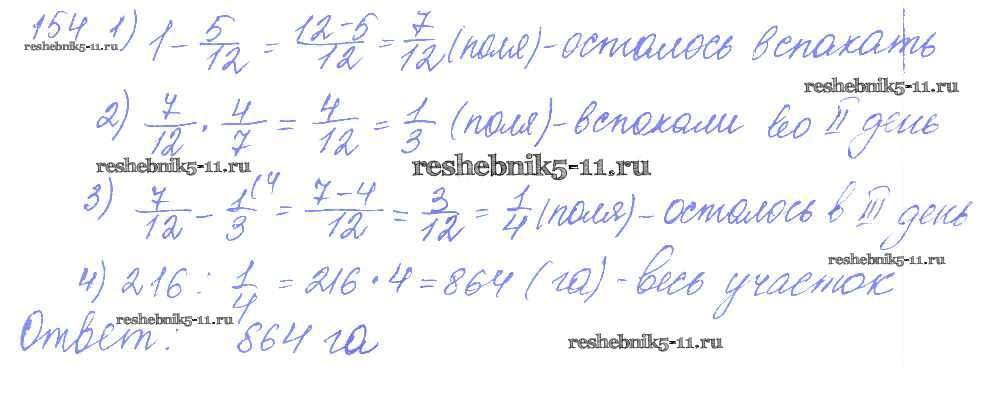 154 1) 1 - 5/12 = (12-5)/12 = 7/12 (поля) - осталось вспахать
reshebnik5-11.ru
reshebnik5-11.ru
2) 7/12 · 4/7 = 4/12 = 1/3 (поля) - вспахали во II день
reshebnik5-11.ru
reshebnik5-11.ru
3) 7/12 - 1/3 (4 = (7-4)/12 = 3/12 = 1/4 (поля) - осталось в III день
reshebnik5-11.ru
4) 216 : 1/4 = 216 · 4 = 864 (га) - весь участок
reshebnik5-11.ru
Ответ: 864 га
reshebnik5-11.ru